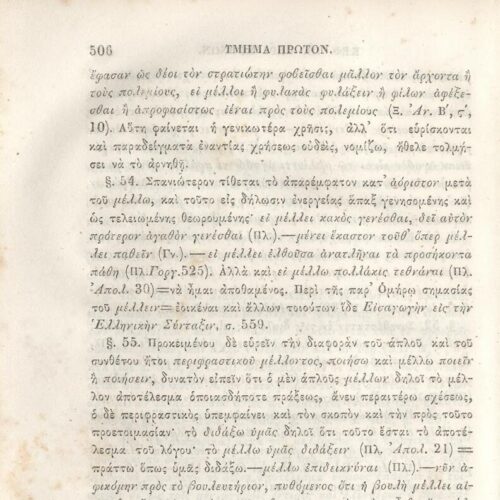 506 ΤΜΗΜΑ ΠΡΩΤΟΝ.
ἔφασαν ὡς δέοι τὸν στρατιώτην φοβεῖσθαι μᾶλλον τὸν ἄρχοντα ἢ
τοὺς πολεμίους, εἰ μέλλοι ἢ φυλακὰς φυλάξειν ἢ φίλων ἀφέξε-
σθαι ἢ ἀπροφασίστως ἰέναι πρὸς τοὺς πολεμίους (Ξ. Ἀν. Β', ς',
10). Αὕτη φαίνεται ἡ γενικωτέρα χρῆσις, ἀλλ' ὅτι εὑρίσκονται
καὶ παραδείγματα ἐναντίας χρήσεως οὐδεὶς, νομίζω, ἤθελε τολμή-
σει νὰ τὸ ἀρνηθῇ.
§. 54. Σπανιώτερον τίθεται τὸ ἀπαρέμφατον κατ' ἀόριστον μετὰ
τοῦ μέλλω, καὶ τοῦτο εἰς δήλωσιν ἐνεργείας ἅπαξ γενησομένης καὶ
ὡς τελειωμένης θεωρουμένης· εἰ μέλλει κακὸς γενέσθαι, δεῖ αὐτὸν
πρότερον ἀγαθὸν γενέσθαι (Πλ.).—μένει ἕκαστον τοῦθ' ὅπερ μέλ-
λει παθεῖν (Γν.).—εἰ μέλλει ἐλθοῦσα ἀνατλῆναι τὰ προσήκοντα
πάθη (Πλ.Γοργ.525). Ἀλλὰ καὶ εἰ μέλλω πολλάκις τεθνάναι (Πλ.
Ἀπολ. 30)=νὰ ἦμαι ἀποθαμένος. Περὶ τῆς παρ' Ὁμήρῳ σημασίας
τοῦ μέλλειν=ἐοικέναι καὶ ἄλλων τοιούτων ἴδε Εἰσαγωγὴν εἰς τὴν
Ἑλληνικὴν Σύνταξιν, σ. 559.
§. 55. Προκειμένου δὲ εὑρεῖν τὴν διαφορὰν τοῦ ἁπλοῦ καὶ τοῦ
συνθέτου ἤτοι περιφραστικοῦ μέλλοντος, ποιήσω καὶ μέλλω ποιεῖν
ἢ ποιήσειν, δυνατὸν εἰπεῖν ὅτι ὁ μὲν ἁπλοῦς μέλλων δηλοῖ τὸ μέλ-
λον ἀποτέλεσμα ὁποιασδήποτε πράξεως, ἄνευ περαιτέρω σχέσεως,
ὁ δὲ περιφραστικὸς ὑπεμφαίνει καὶ τὸν σκοπὸν καὶ τὴν πρὸς τοῦτο
προετοιμασίαν· τὸ διδάξω ὑμᾶς δηλοῖ ὅτι τοῦτο ἔσται τὸ ἀποτέ-
λεσμα τοῦ λόγου· τὸ μέλλω ὑμᾶς διδάξειν (Πλ. Ἀπολ. 21)=
πράττω ὅπως ὑμᾶς διδάξω.—μέλλω ἐπιδεικνύναι (Πλ.).—νῦν ἀ-
φικόμην πρὸς τὸ βουλευτήριον, ἐπειδὴ ἡ βουλὴ μέλλει αἱ-